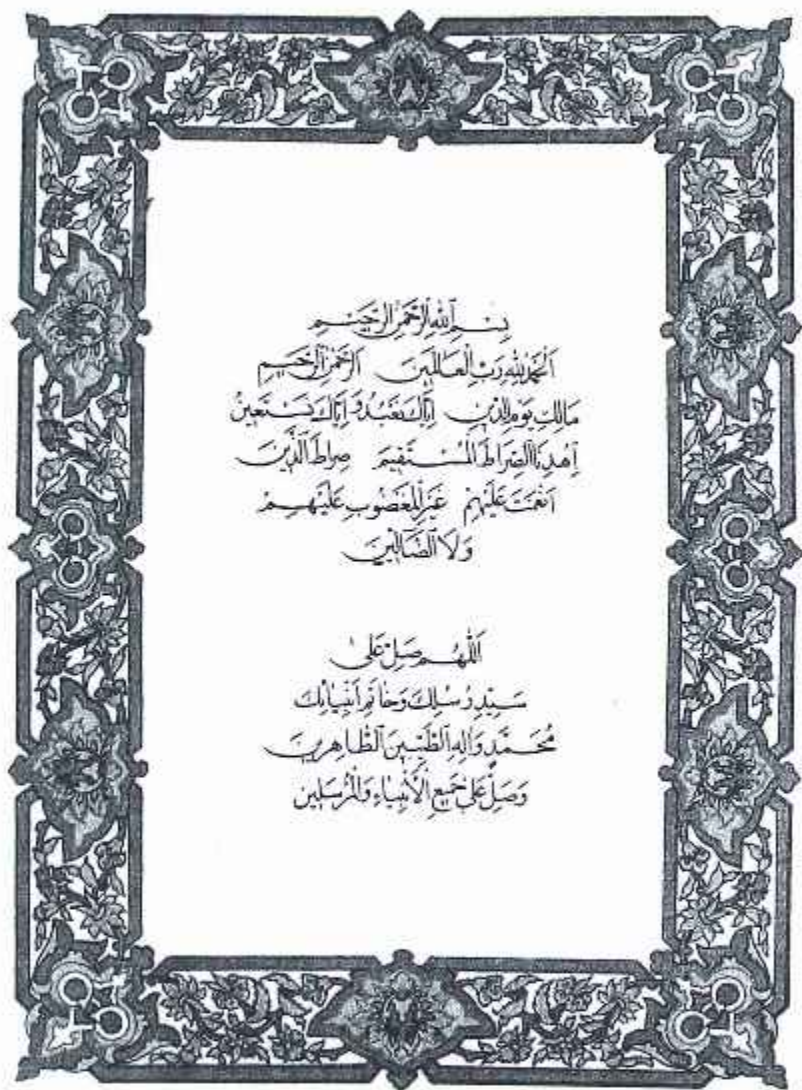 بِسْمِ اللهِ الرَّحْمٰنِ الرَّحِيمِ
اَلْحَمْدُ لِلّٰهِ رَبِّ الْعَالَمِينَ الرَّحْمٰنِ الرَّحِيمِ
مَالِكِ يَوْمِ الدِّينِ اِيَّاكَ نَعْبُدُ وَاِيَّاكَ نَسْتَعِينُ
اِهْدِنَا الصِّرَاطَ الْمُسْتَقِيمَ صِرَاطَ الَّذِينَ
اَنْعَمْتَ عَلَيْهِمْ غَيْرِ الْمَغْضُوبِ عَلَيْهِمْ
وَلَا الضَّالِّينَ
اَللّٰهُمَّ صَلِّ عَلٰى
سَيِّدِ رُسُلِكَ وَخَاتَمِ اَنْبِيَائِكَ
مُحَمَّدٍ وَالِهِ الطَّيِّبِينَ الطَّاهِرِينَ
وَصَلِّ عَلٰى جَمِيعِ الْاَنْبِيَاءِ وَالْمُرْسَلِينَ